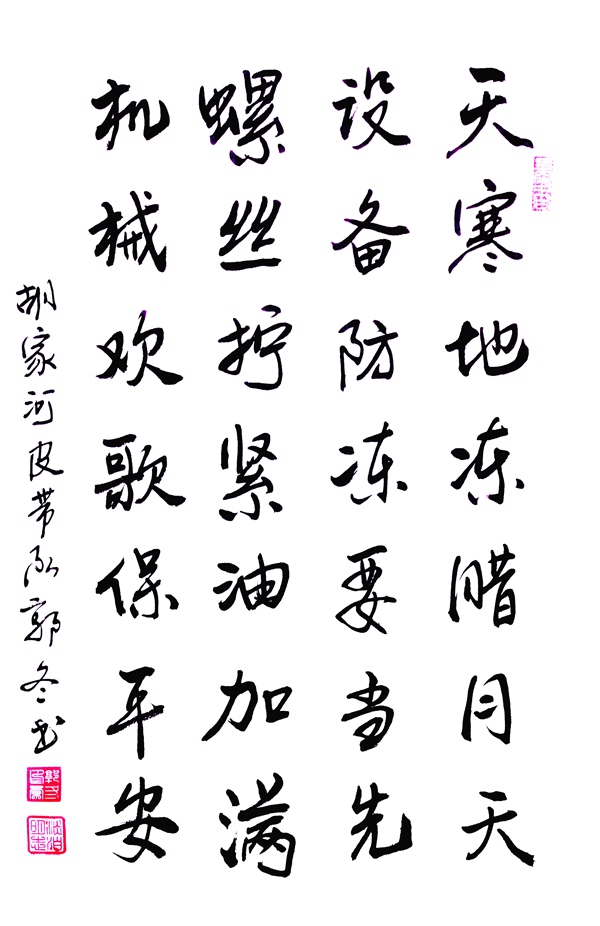 天寒地冻腊月天
设备防冻要当先
螺丝拧紧油加满
机械欢歌保平安
胡家河皮带队郭冬书